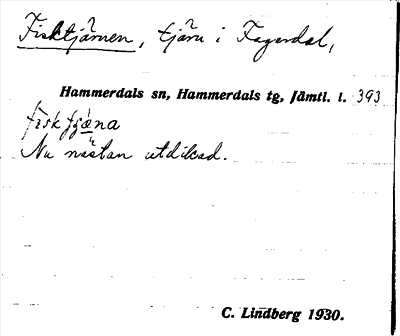 Fisktjärnen, tjärn i Fagerdal,
Hammerdals sn, Hammerdals tg, Jämtl. l. 393
Nu nästan utdikad.
C. Lindberg 1930.